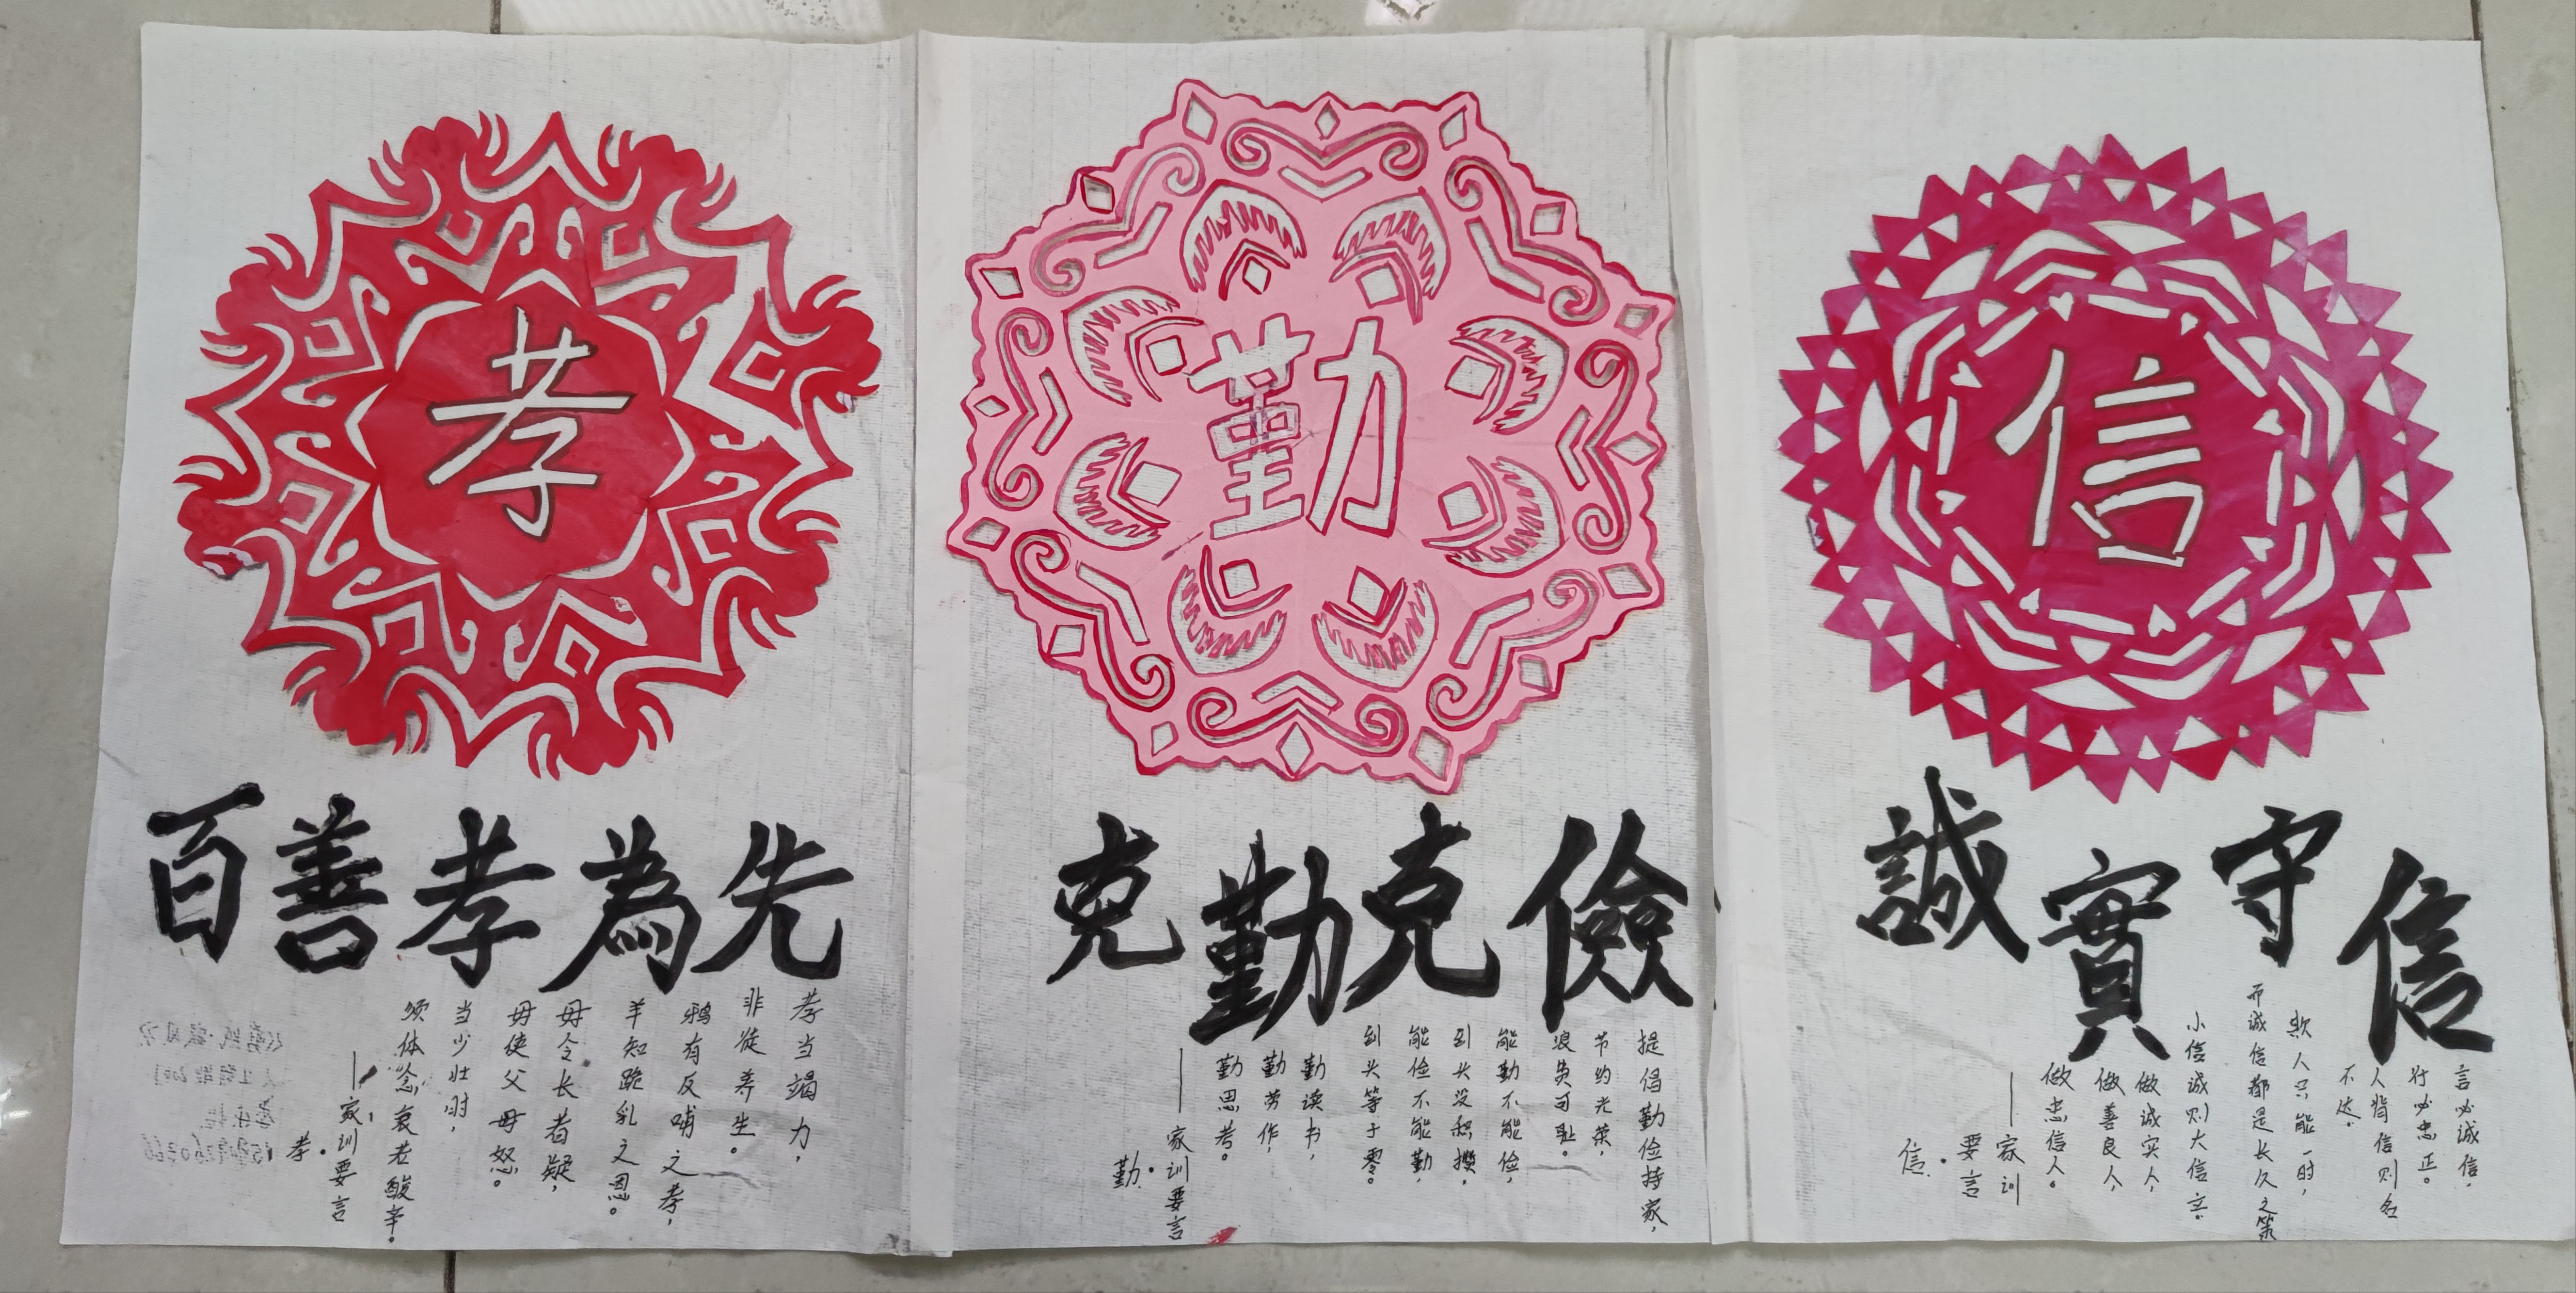 孝
百善孝為先
孝当竭力，
非徒养生。
鸦有反哺之孝，
羊知跪乳之恩。
毋令长者疑，
毋使父母怒。
当少壮时，
须体念衰老酸辛。
——家训要言
孝
勤
克勤克儉
提倡勤俭持家，
节约光荣，
浪费可耻。
能勤不能俭，
到头没积攒，
能俭不能勤，
到头等于零。
勤读书，
勤劳作，
勤思考。
——家训要言
勤
信
誠實守信
言必诚信，
行必忠正。
人背信则名
不达。
欺人只能一时，
而诚信都是长久之策
小信诚则大信立。
做诚实人，
做善良人，
做忠信人。
——家训
要言
信